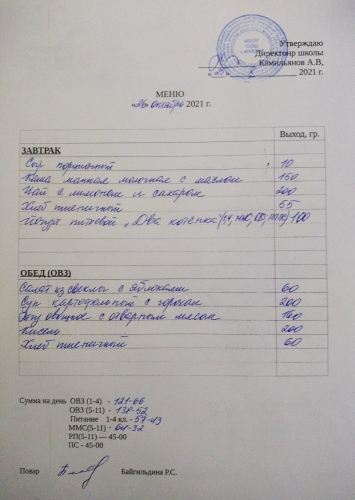 Утверждаю
Директонр школы
Камильянов А.В,
2021 г.
МЕНЮ
«26» октября 2021 г.
Выход, гр.
ЗАВТРАК
Сыр порционный 10
Каша манная молочная с маслом 150
Чай с лимоном и сахаром 200
Хлеб пшеничный 55
Йогурт питьевой „Два котенка" 100
ОБЕД (ОВЗ)
Салат из свеклы с яблоками 60
Суп картофельный с горохом 200
Рагу овощное с отварным мясом 160
Кисель 200
Хлеб пшеничный 60
Сумма на день ОВЗ (1-4) - 121-66
ОВЗ (5-11) - 138-52
Питание 1-4 кл. - 57-43
ММС(5-11) - 64-32
РП(5-11) — 45-00
ПС - 45-00
Повар Байгильдина Р.С.